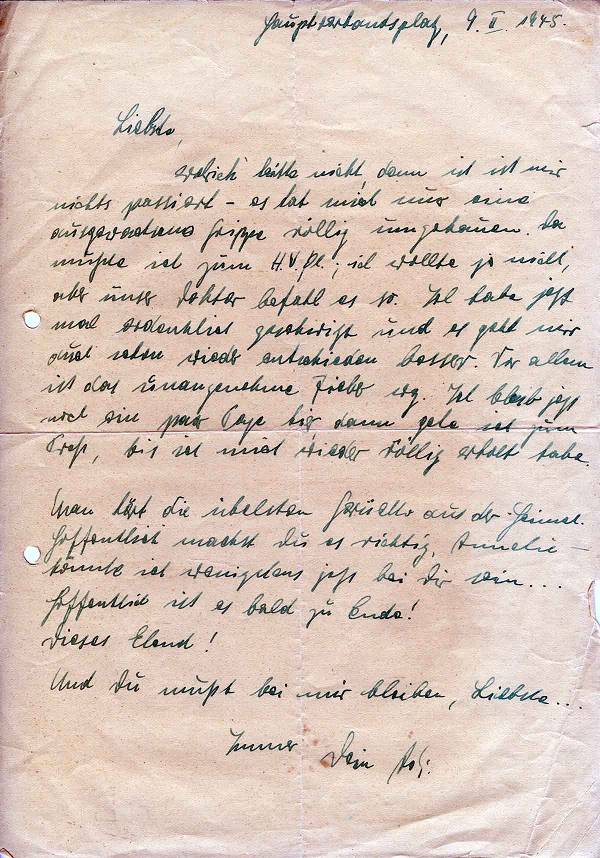 Hauptverbandsplatz, 9. II. 1945.
Liebste,
erschrick bitte nicht, denn ist mir
nichts passiert - es hat mich nur eine
ausgewachsene Grippe völlig umgehauen. Da
mußte ich zum H.V.Pl.; ich wollte ja nicht,
aber unser Doktor befahl es so. Ich habe jetzt
mal ordentlich geschwitzt und es geht mir
auch schon wieder entschieden besser. Vor allem
ist das unangenehme Fieber weg. Ich bleib jetzt
noch ein paar Tage hier dann gehe ich zum
Troß, bis ich mich wieder völlig erholt habe.
Man hört die übelsten Gerüchte aus der Heimat.
Hoffentlich machst Du es richtig, Annelie -
könnte ich wenigstens jetzt bei Dir sein....
Hoffentlich ist es bald zu Ende!
Dieses Elend!
Und Du mußt bei mir bleiben, Liebste...
Immer Dein